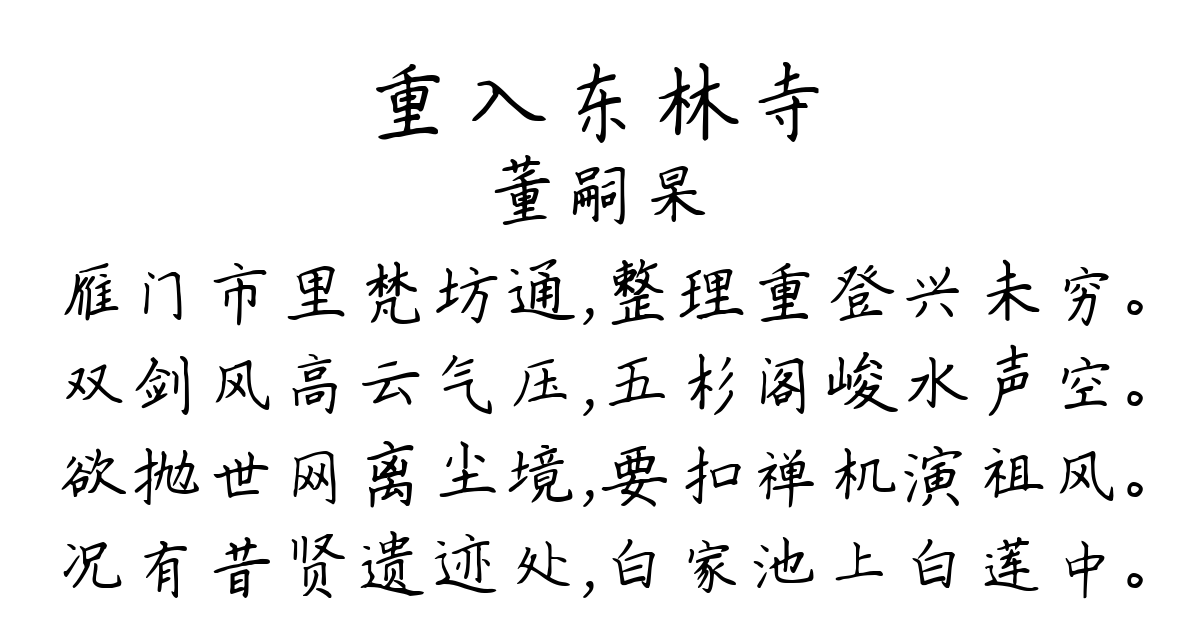 重入东林寺
董嗣杲
雁门市里梵坊通,整理重登兴未穷。
双剑风高云气压,五杉阁峻水声空。
欲抛世网离尘境,要扣禅机演祖风。
况有昔贤遗迹处,白家池上白莲中。